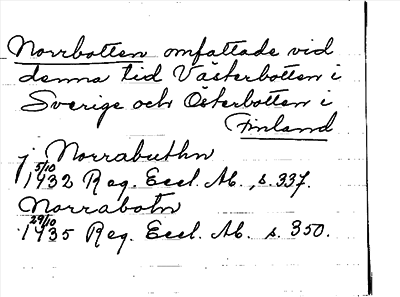 Norrbotten omfattade vid
denna tid Västerbotten i
Sverige och Österbotten i
Finland
j Norrabuthn
5/10 1432 Reg. Eccl. Ab., s. 337.
Norrabotn
29/10 1435 Reg. Eccl. Ab. s. 350.